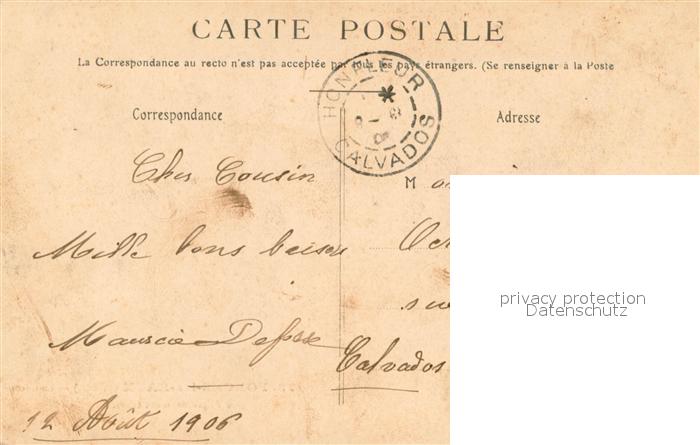 CARTE POSTALE
La Correspondance au recto n'est pas acceptée par tous les pays étrangers. (Se renseigner à la Poste
HONFLEUR
CALVADOS
Correspondance
Adresse
Cher Cousin
M
Mille bons baisers
Maurice
Calvados
12 Août 1906
privacy protection
Datenschutz